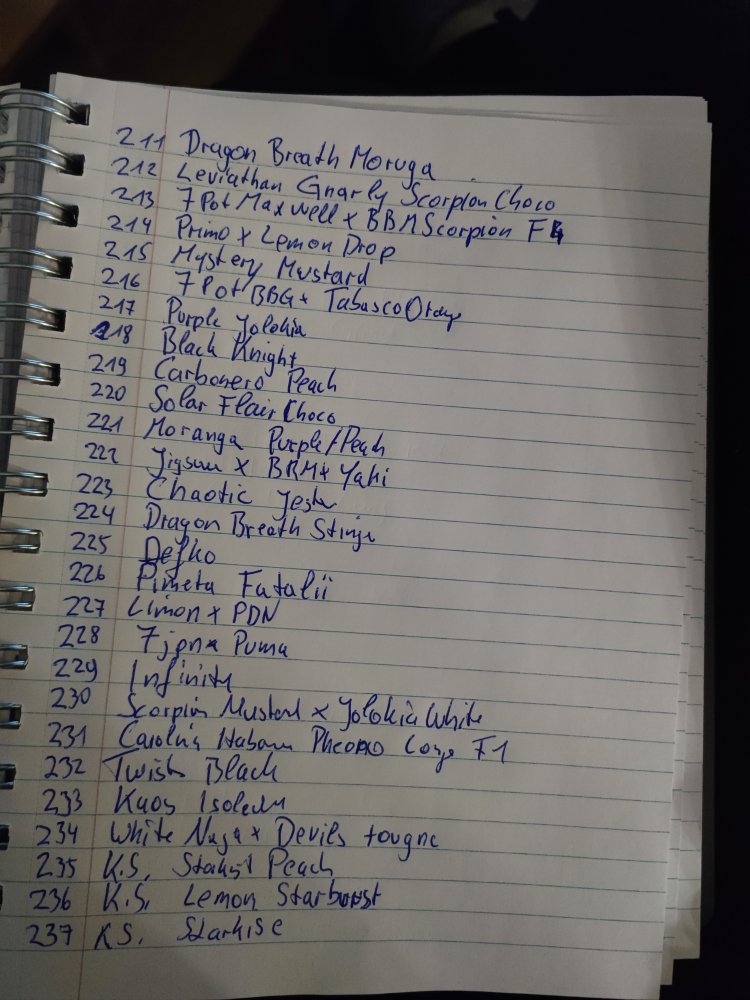 211 Dragon Breath Moruga
212 Leviathan Gnarly Scorpion Choco
213 7 Pot Maxwell x BBM Scorpion F4
214 Primo x Lemon Drop
215 Mystery Mustard
216 7 Pot BBG x Tabasco
217 Purple Jolokia
218 Black Knight
219 Carbonero Peach
220 Solar Flair Choco
221 Moranga Purple/Peach
222 Jigsaw x BBM x Yaki
223 Chaotic
224 Dragon Breath
225
226 Pimeta Fatalii
227 Limon x PDN
228 7 x Puma
229 Infinity
230 Scorpion Mustard x Jolokia White
231 F1
232 Black
233
234 White Naga x Devils tougne
235 K.S. Peach
236 K.S. Lemon Starburst
237 K.S. Starkise